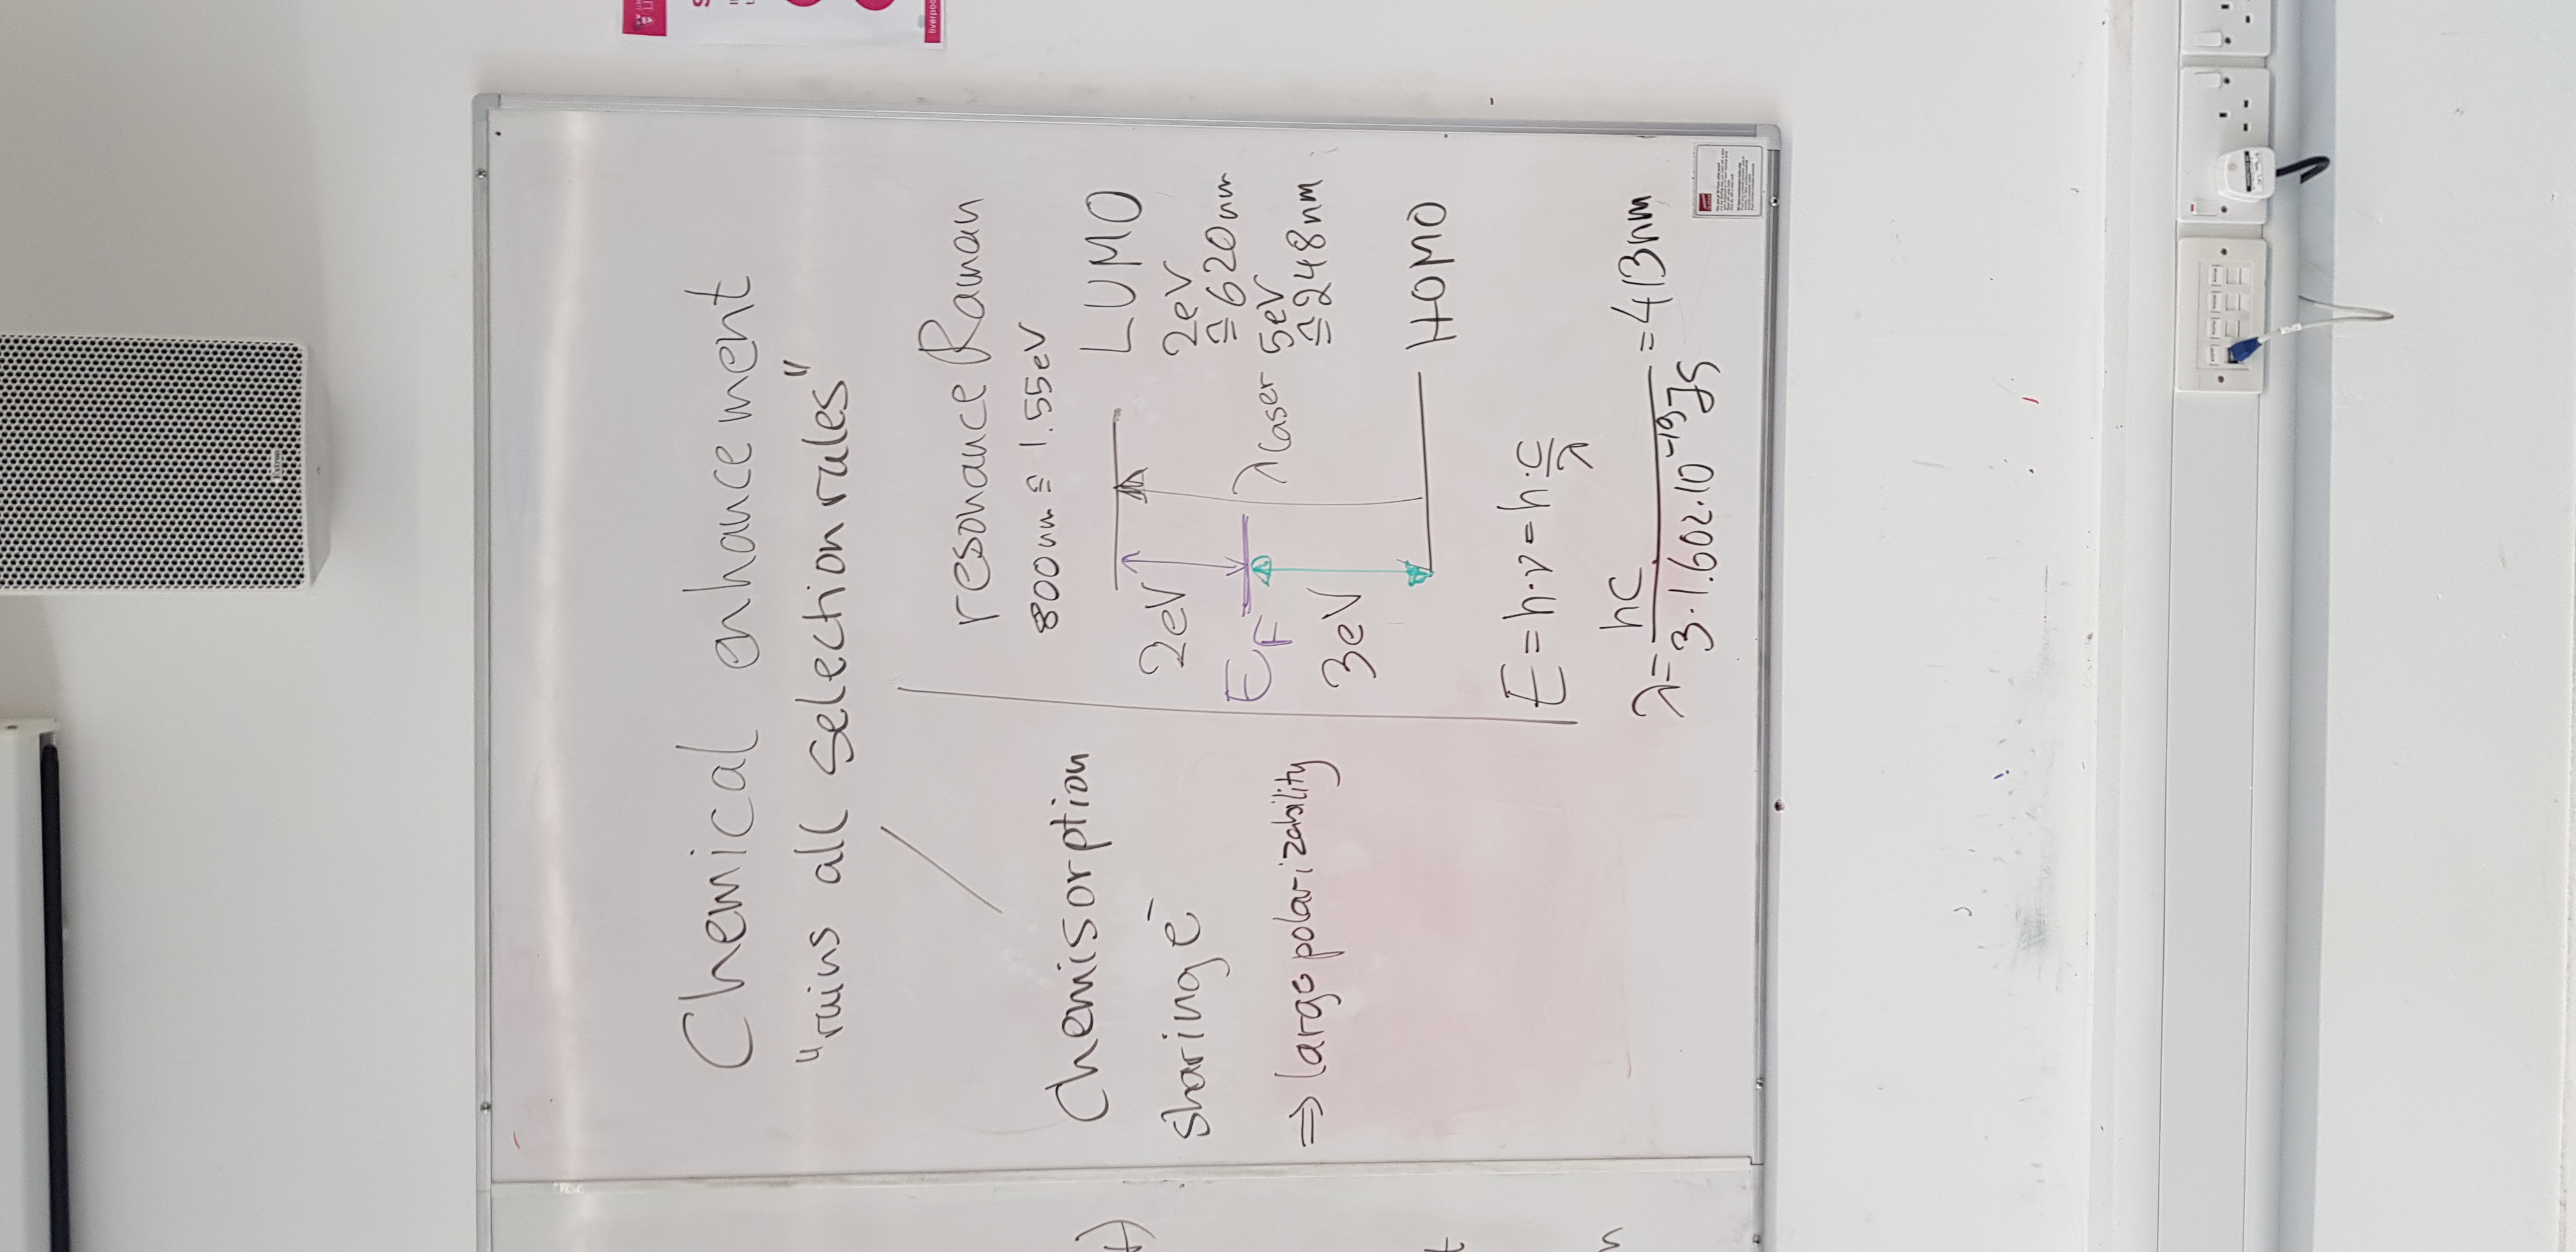 Chemical enhancement
"ruins all selection rules"
Chemisorption
sharing e⁻
⇒ large polarizability
resonance Raman
800nm ≙ 1.55eV
LUMO
2eV
2eV
≙ 620nm
EF
λLaser
5eV
≙ 248nm
3eV
HOMO
E = h·ν = h·c/λ
λ = hc / 3·1.602·10⁻¹⁹ JS = 413nm
Extron